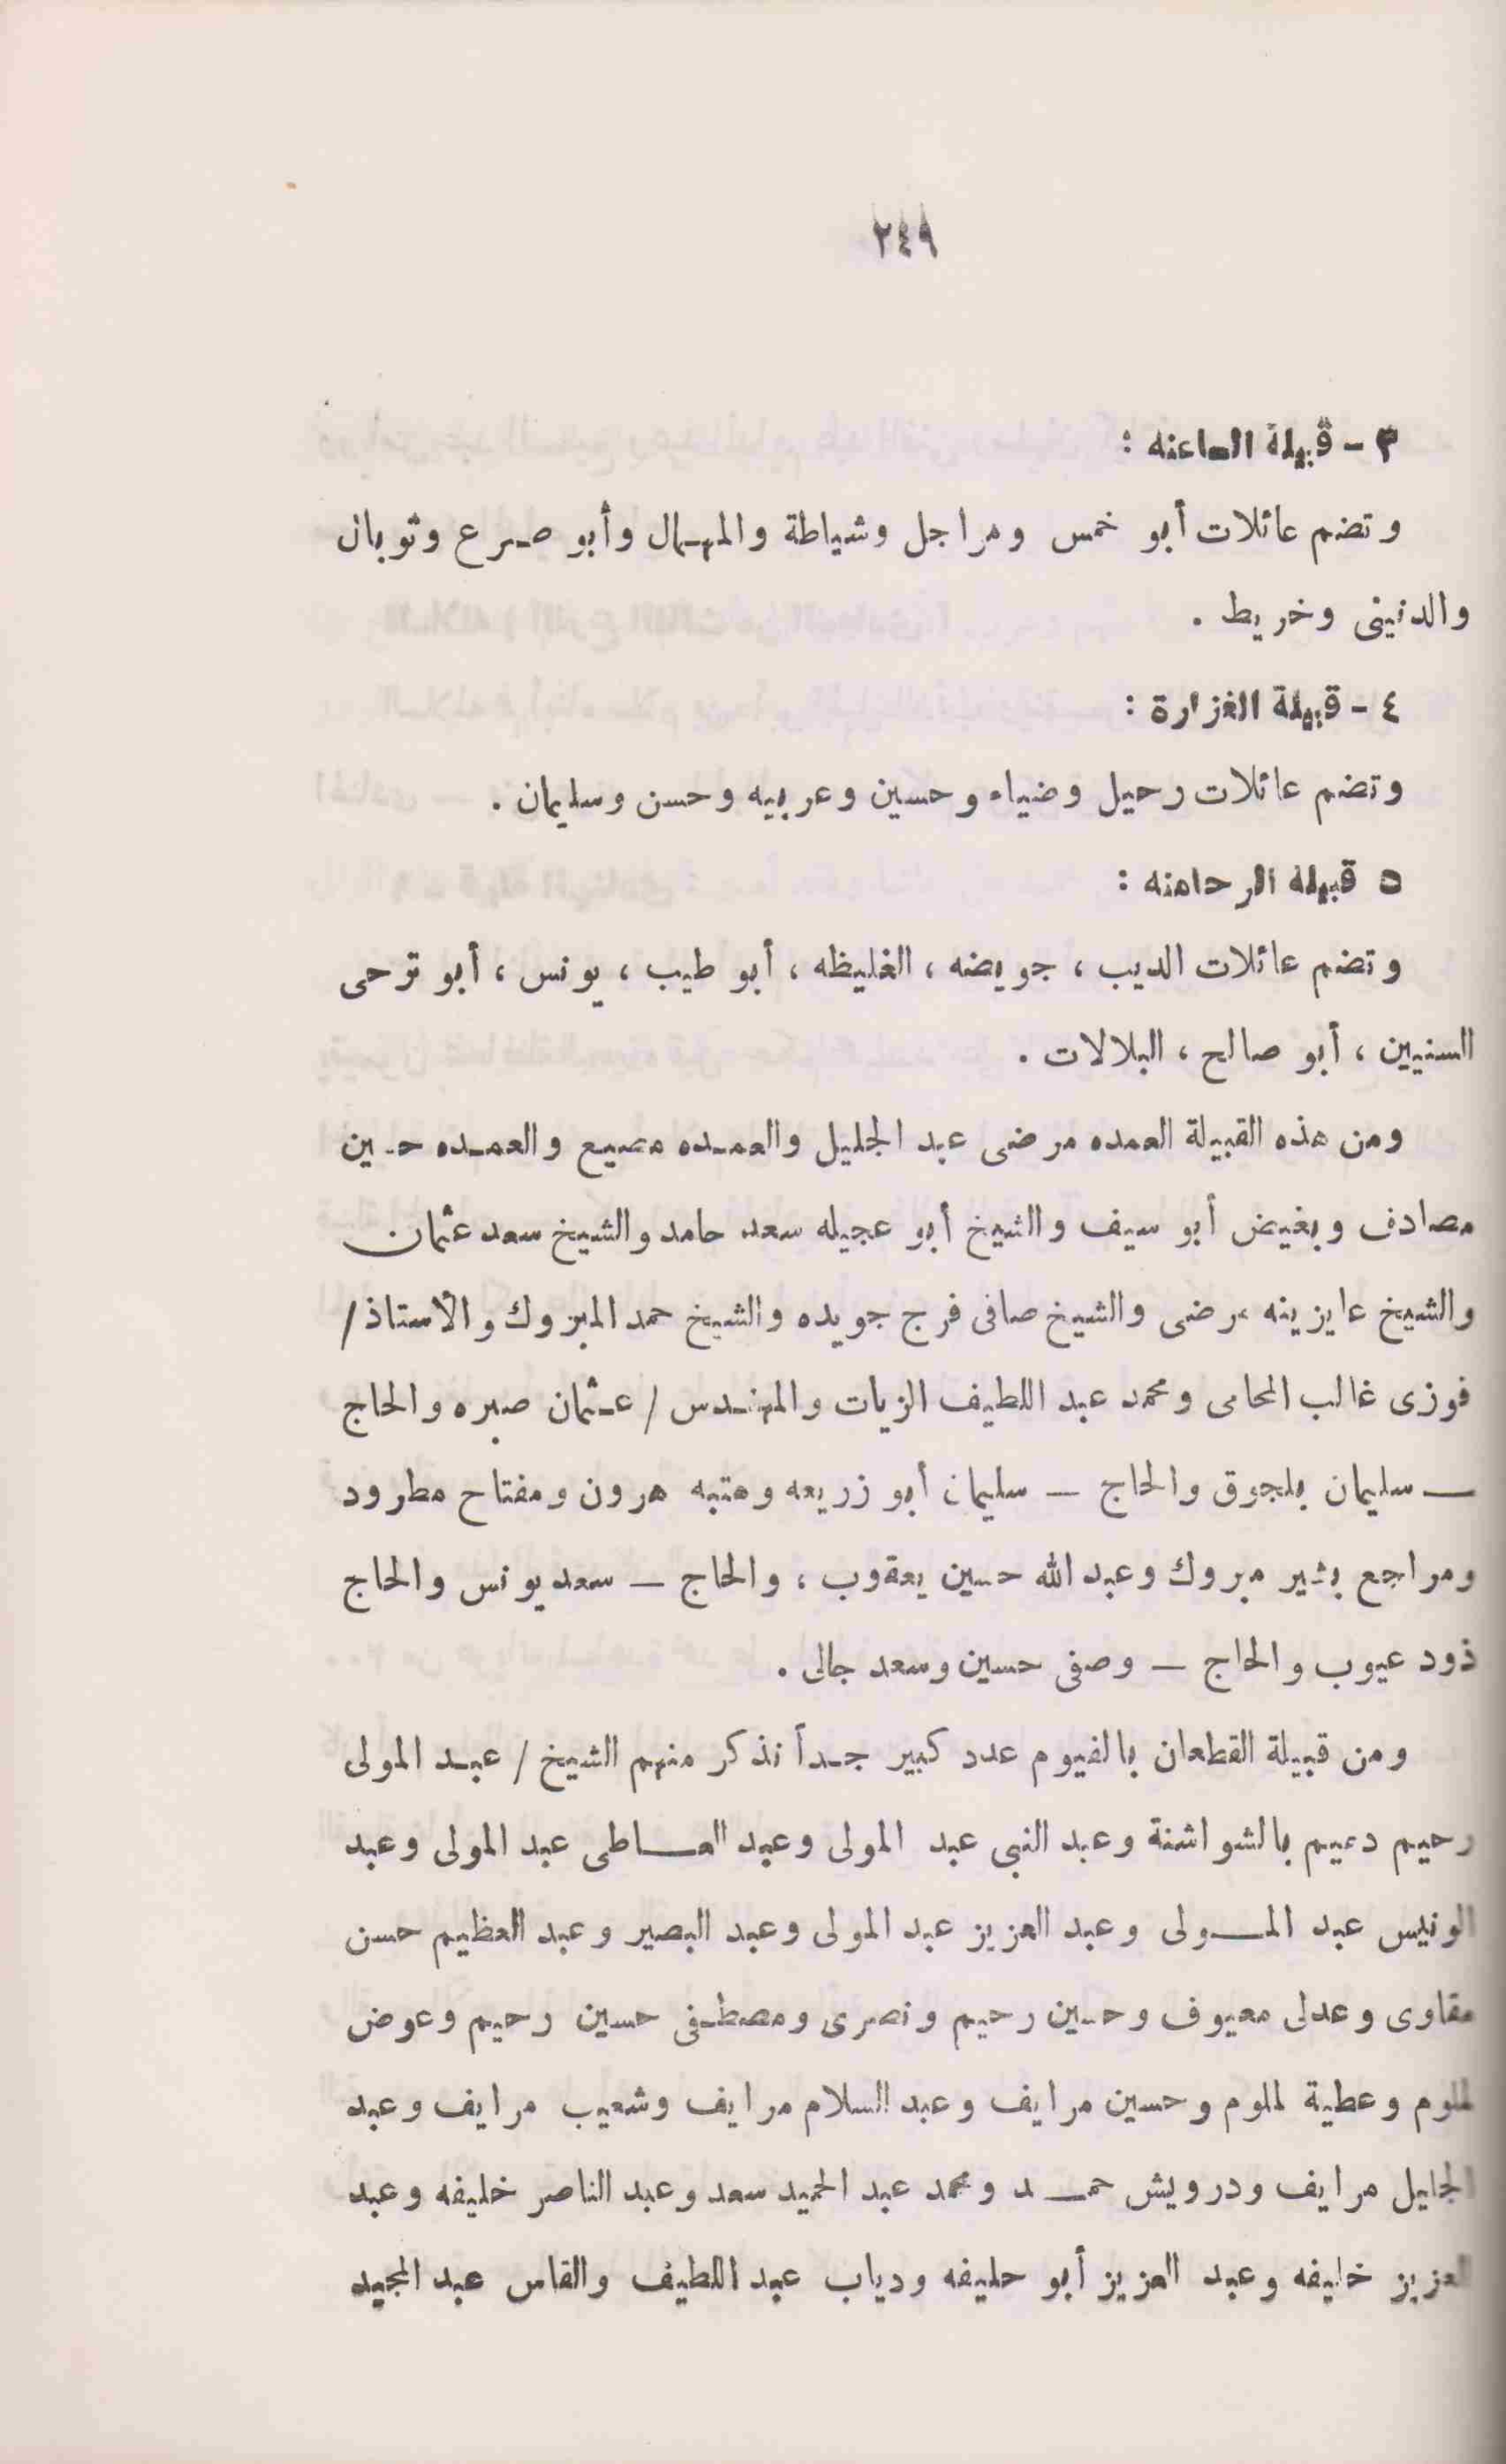 ٢٤٩
٣ - قبيلة الصاعنه :
وتضم عائلات أبو خمس ومراجل وشياطة والمهمال وأبو صرع وثوبان
والدنينى وخريط .
٤ - قبيلة الغزارة :
وتضم عائلات رحيل وضياء وحسين وعربيه وحسن وسليمان .
٥ قبيلة الرحامنه :
وتضم عائلات الديب ، جويضه ، الغليظه ، أبو طيب ، يونس ، أبو ترحى
السنيين ، أبو صالح ، البلالات .
ومن هذه القبيلة العمده مرضى عبد الجليل والعمده مصيع والعمده حسين
مصادف وبغيض أبو سيف والشيخ أبو عجيله سعد حامد والشيخ سعد عثمان
والشيخ عايزينه مرضى والشيخ صافى فرج جويده والشيخ حمد المبروك والأستاذ /
فوزى غالب المحامى ومحمد عبد اللطيف الزيات والمهندس / عثمان صبره والحاج
— سليمان بلجوق والحاج — سليمان أبو زريعه وعتبه هرون ومفتاح مطرود
ومراجع بشير مبروك وعبد الله حسين يعقوب ، والحاج — سعد يونس والحاج
ذود عيوب والحاج — وصفى حسين وسعد جالى .
ومن قبيلة القطعان بالفيوم عدد كبير جداً نذكر منهم الشيخ / عبد المولى
رحيم دعيم بالشواشنة وعبد النبى عبد المولى وعبد العاطى عبد المولى وعبد
الونيس عبد المولى وعبد العزيز عبد المولى وعبد البصير وعبد العظيم حسن
مقاوى وعدلى معيوف وحسين رحيم ونصرى ومصطفى حسين رحيم وعوض
لملوم وعطية لملوم وحسين مرايف وعبد السلام مرايف وشعيب مرايف وعبد
الجليل مرايف ودرويش حمد ومحمد عبد الحميد سعد وعبد الناصر خليفه وعبد
العزيز خليفه وعبد العزيز أبو حليفه ودياب عبد اللطيف والقاس عبد المجيد